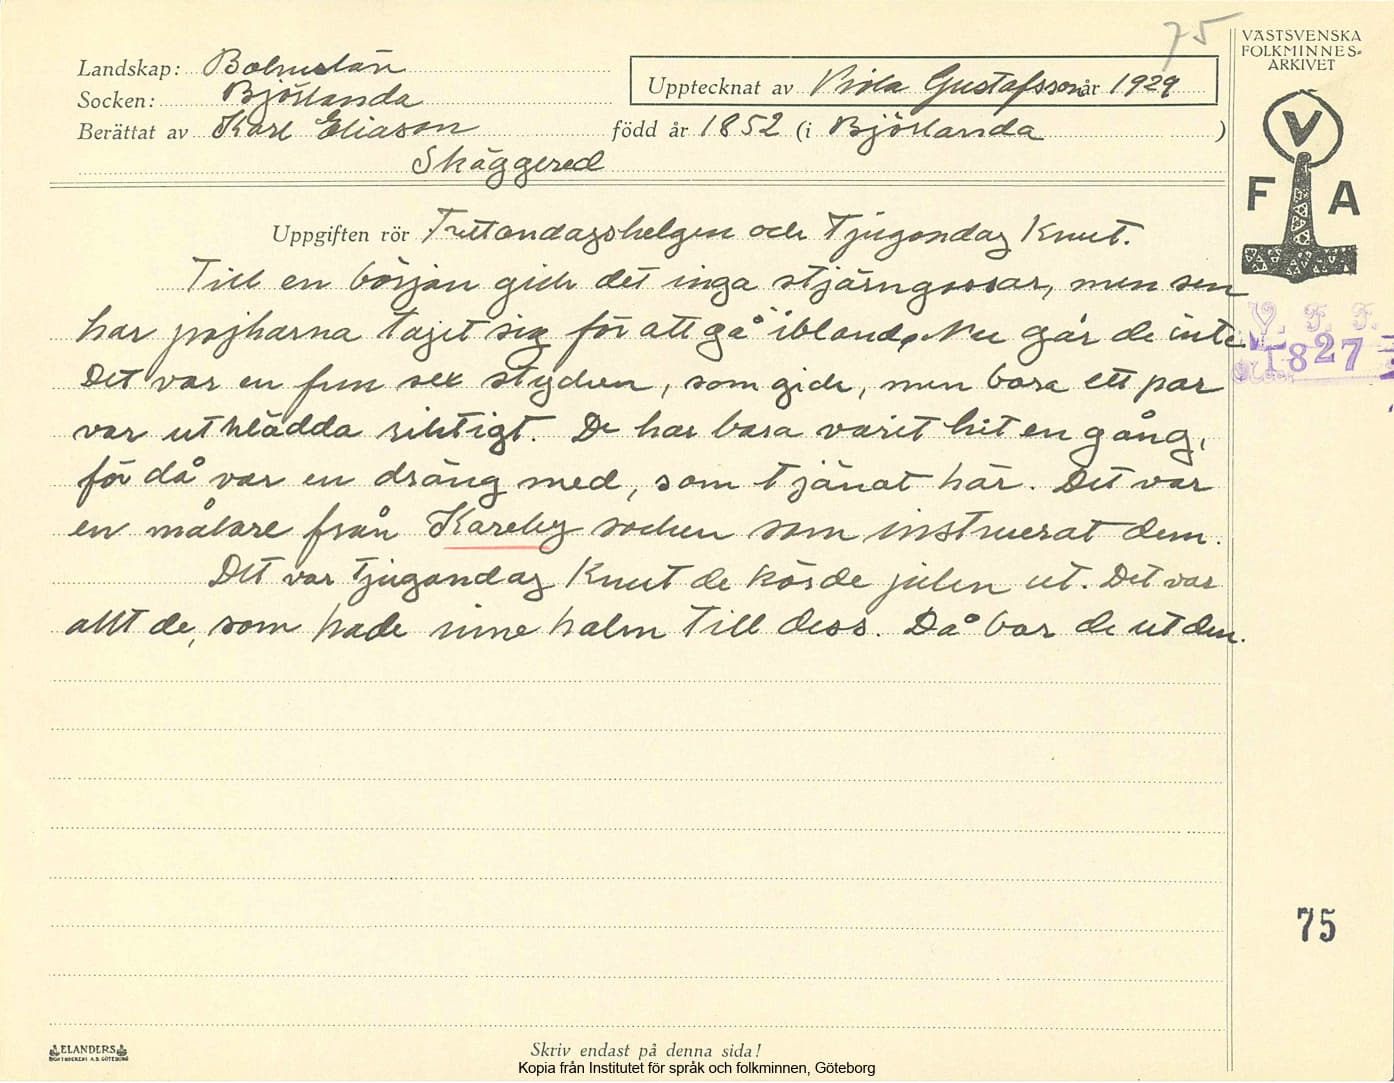 75
VÄSTSVENSKA
FOLKMINNES-
ARKIVET
Landskap: Bohuslän
Socken: Björlanda
Upptecknat av Viola Gustafsson år 1929
Berättat av Karl Eliason född år 1852 (i Björlanda )
Skäggered
V
F A
Uppgiften rör Trettondagshelgen och Tjugondag Knut.
Till en början gick det inga stjärngossar, men sen
har pojkarna tajet sig för att gå ibland. Nu går de inte.
Det var en fem sex stycken, som gick, men bara ett par
var utklädda riktigt. De har bara varit hit en gång,
för då var en dräng med, som tjänat här. Det var
en målare från Kareby socken som instruerat dem.
Det var Tjugondag Knut de körde julen ut. Det var
allt de, som hade inne halm till dess. Då bar de ut den.
V. F. F.
1827
75
ELANDERS
BOKTRYCKERI A.B. GÖTEBORG
Skriv endast på denna sida!
Kopia från Institutet för språk och folkminnen, Göteborg